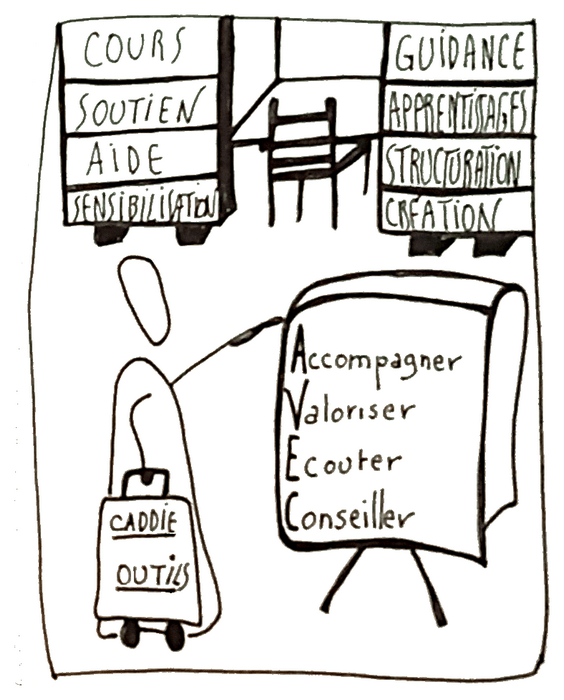 COURS
SOUTIEN
AIDE
SENSIBILISATION
GUIDANCE
APPRENTISSAGES
STRUCTURATION
CRÉATION
Accompagner
Valoriser
Ecouter
Conseiller
CADDIE
OUTILS